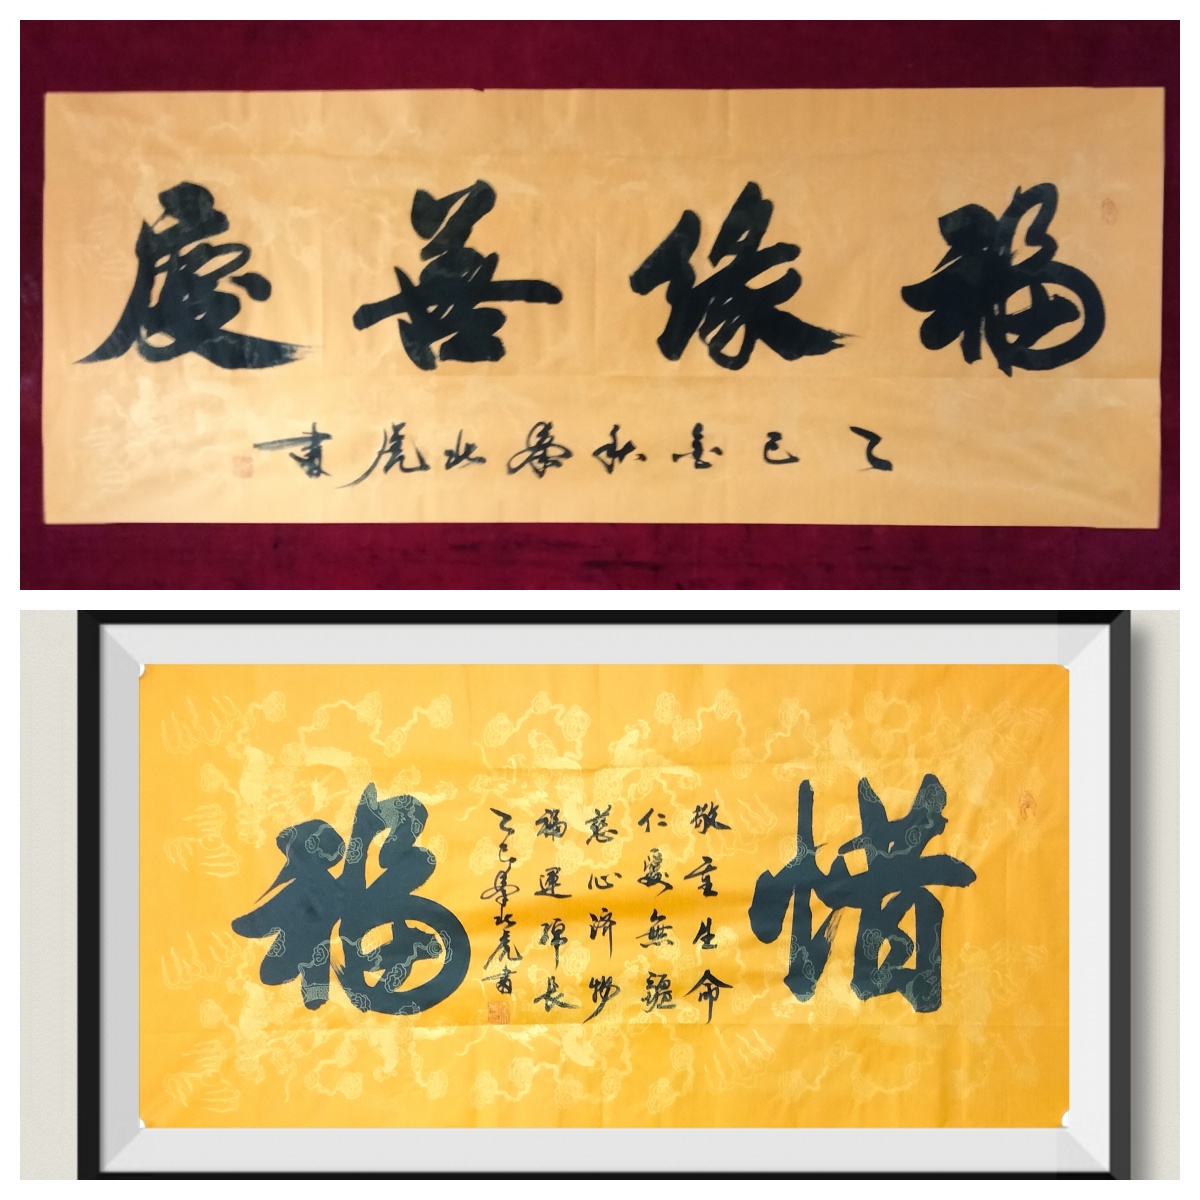 福緣善慶
乙巳金秋秦北虎書
惜
敬重生命
仁愛無疆
慈心济物
福運綿長
乙巳秦北虎書
福